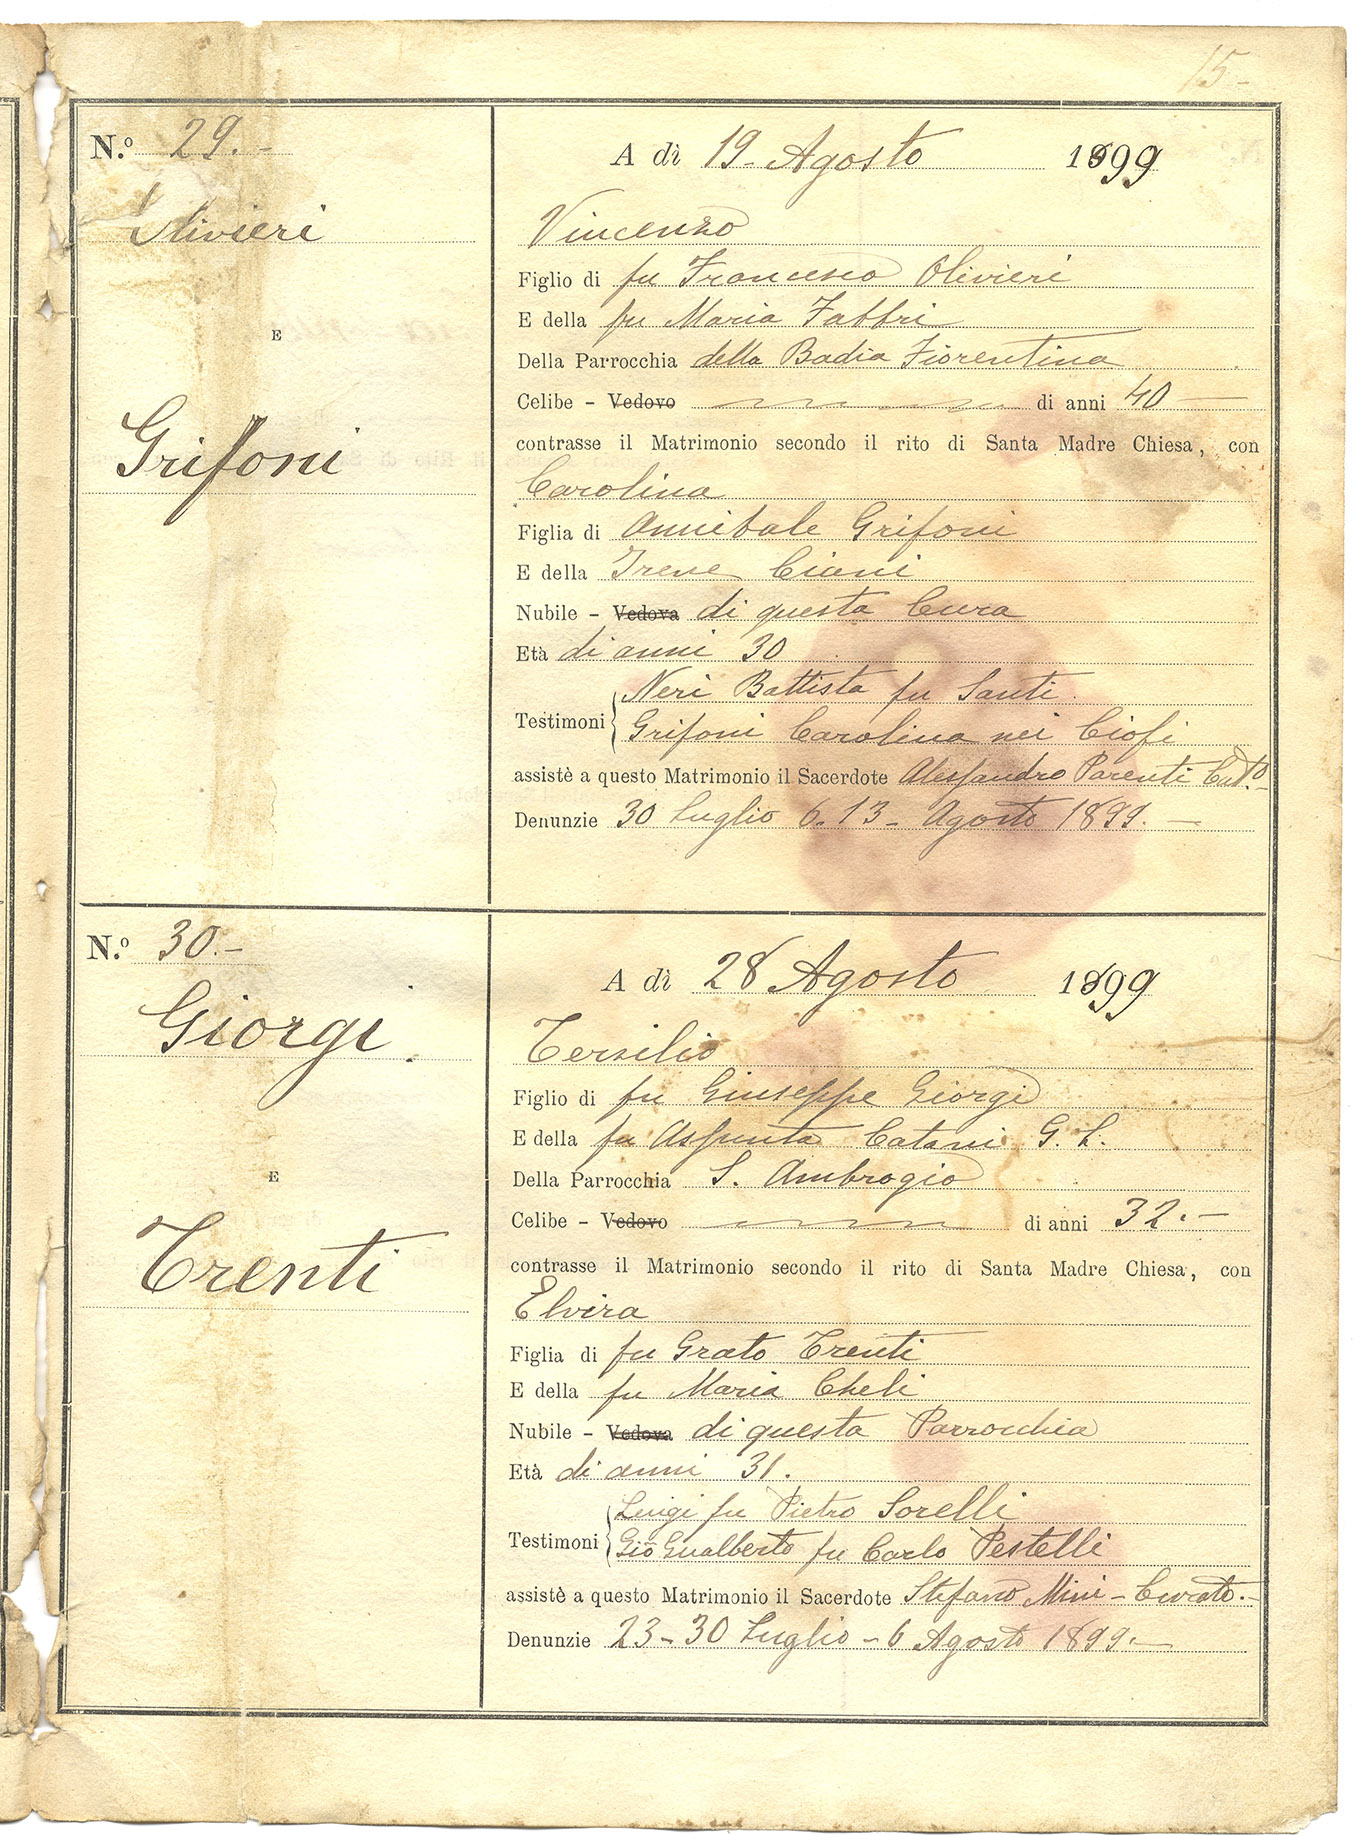 15-
N.º 29.-
Olivieri
E
Grifoni
A dì 19 Agosto 1899
Vincenzo
Figlio di fu Francesco Olivieri
E della fu Maria Fabbri
Della Parrocchia della Badia Fiorentina
Celibe - Vedovo di anni 40
contrasse il Matrimonio secondo il rito di Santa Madre Chiesa, con
Carolina
Figlia di Annibale Grifoni
E della Irene Ciani
Nubile - Vedova di questa Cura
Età di anni 30
Testimoni Neri Battista fu Santi
Grifoni Carolina nei Ciofi
assistè a questo Matrimonio il Sacerdote Alessandro Parenti Cur.to
Denunzie 30 Luglio 6-13- Agosto 1899.-
N.º 30.-
Giorgi.
E
Trenti
A dì 28 Agosto 1899
Tersilio
Figlio di fu Giuseppe Giorgi
E della fu Assunta Catani G. L.
Della Parrocchia S. Ambrogio
Celibe - Vedovo di anni 32.-
contrasse il Matrimonio secondo il rito di Santa Madre Chiesa, con
Elvira
Figlia di fu Grato Trenti
E della fu Maria Cheli
Nubile - Vedova di questa Parrocchia
Età di anni 31.
Testimoni Luigi fu Pietro Sorelli
Gio Gualberto fu Carlo Pestelli
assistè a questo Matrimonio il Sacerdote Stefano Mini - Curato.-
Denunzie 23-30 Luglio - 6 Agosto 1899.-